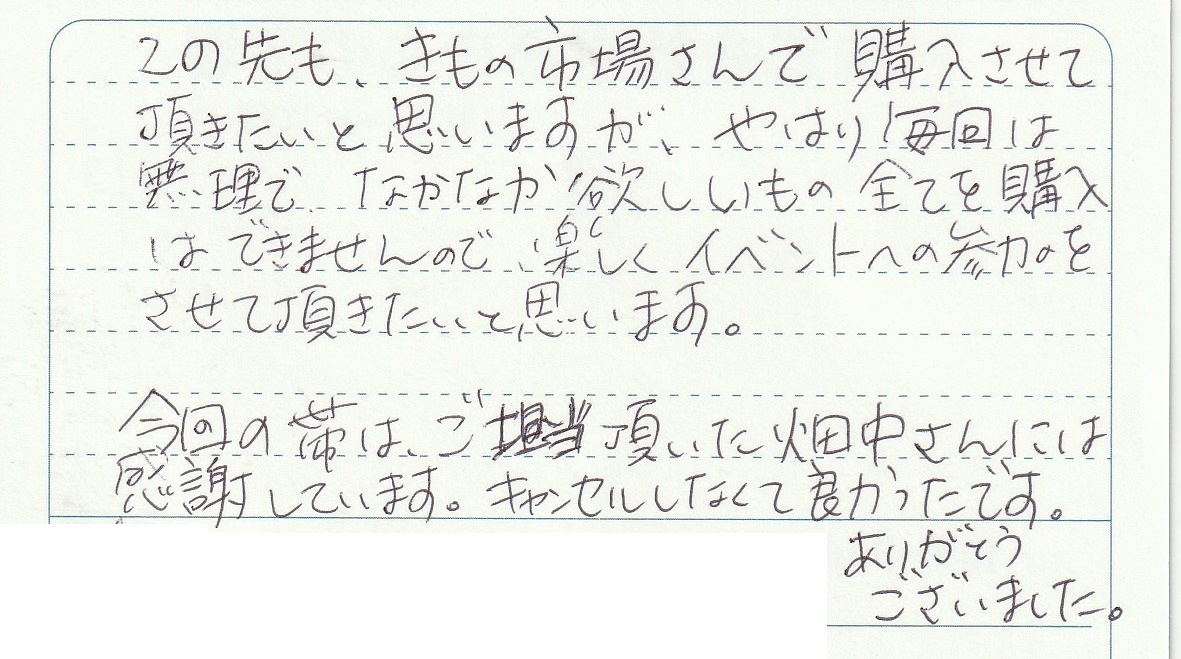 この先も、きもの市場さんで購入させて
頂きたいと思いますが、やはり毎回は
無理で、なかなか欲しいもの全てを購入
はできませんので、楽しくイベントへの参加を
させて頂きたいと思います。
今回の帯は、ご担当頂いた畑中さんには
感謝しています。キャンセルしなくて良かったです。
ありがとう
ございました。